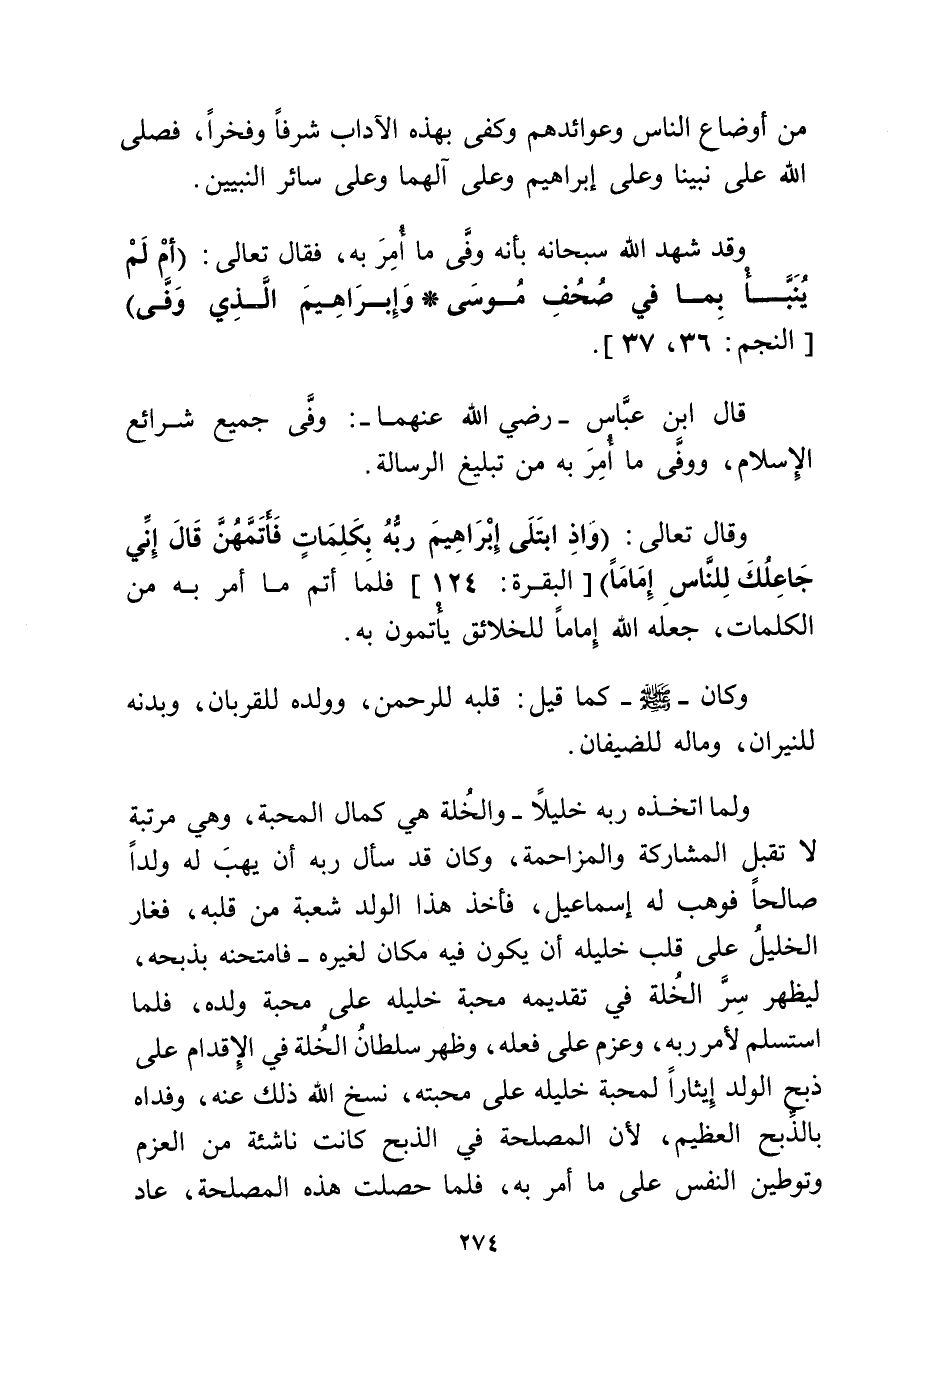 من أوضاع الناس وعوائدهم وكفى بهذه الآداب شرفاً وفخراً، فصلى
الله على نبينا وعلى إبراهيم وعلى آلهما وعلى سائر النبيين.
وقد شهد الله سبحانه بأنه وفَّى ما أُمِرَ به، فقال تعالى: (أَمْ لَمْ
يُنَبَّأْ بِما في صُحُفِ مُوسَى * وَإِبرَاهِيمَ الَّذِي وَفَّى)
[ النجم: ٣٦، ٣٧ ].
قال ابن عبَّاس ـ رضي الله عنهما ـ: وفَّى جميع شرائع
الإِسلام، ووفَّى ما أُمِرَ به من تبليغ الرسالة.
وقال تعالى: (وَاذِ ابتَلَى إِبْرَاهِيمَ ربُّهُ بِكَلِمَاتٍ فَأَتَمَّهُنَّ قَالَ إِنِّي
جَاعِلُكَ لِلنَّاسِ إِمَامَاً) [ البقرة: ١٢٤ ] فلما أتم ما أمر به من
الكلمات، جعله الله إِماماً للخلائق يأتمون به.
وكان ـ ﷺ ـ كما قيل: قلبه للرحمن، وولده للقربان، وبدنه
للنيران، وماله للضيفان.
ولما اتخذه ربه خليلاً ـ والخُلة هي كمال المحبة، وهي مرتبة
لا تقبل المشاركة والمزاحمة، وكان قد سأل ربه أن يهبَ له ولداً
صالحاً فوهب له إسماعيل، فأخذ هذا الولد شعبة من قلبه، فغار
الخليلُ على قلب خليله أن يكون فيه مكان لغيره ـ فامتحنه بذبحه،
ليظهر سِرَّ الخُلة في تقديمه محبة خليله على محبة ولده، فلما
استسلم لأمر ربه، وعزم على فعله، وظهر سلطانُ الخُلة في الإِقدام على
ذبح الولد إِيثاراً لمحبة خليله على محبته، نسخ الله ذلك عنه، وفداه
بالذِّبح العظيم، لأن المصلحة في الذبح كانت ناشئة من العزم
وتوطين النفس على ما أمر به، فلما حصلت هذه المصلحة، عاد
٢٧٤